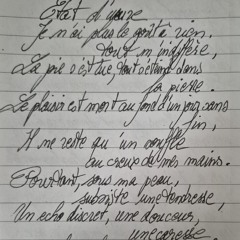 Etat
Je n'ai plus le goût à rien.
tout m'indiffère,
La s'est tue, tout dans
la pierre.
Le plaisir est mort au fond d'un puits sans
fin,
Il ne reste qu'un souffle
au creux de mes mains.
Pourtant, sous ma peau,
subsiste une tendresse,
Un echo discret, une douceur,
une caresse